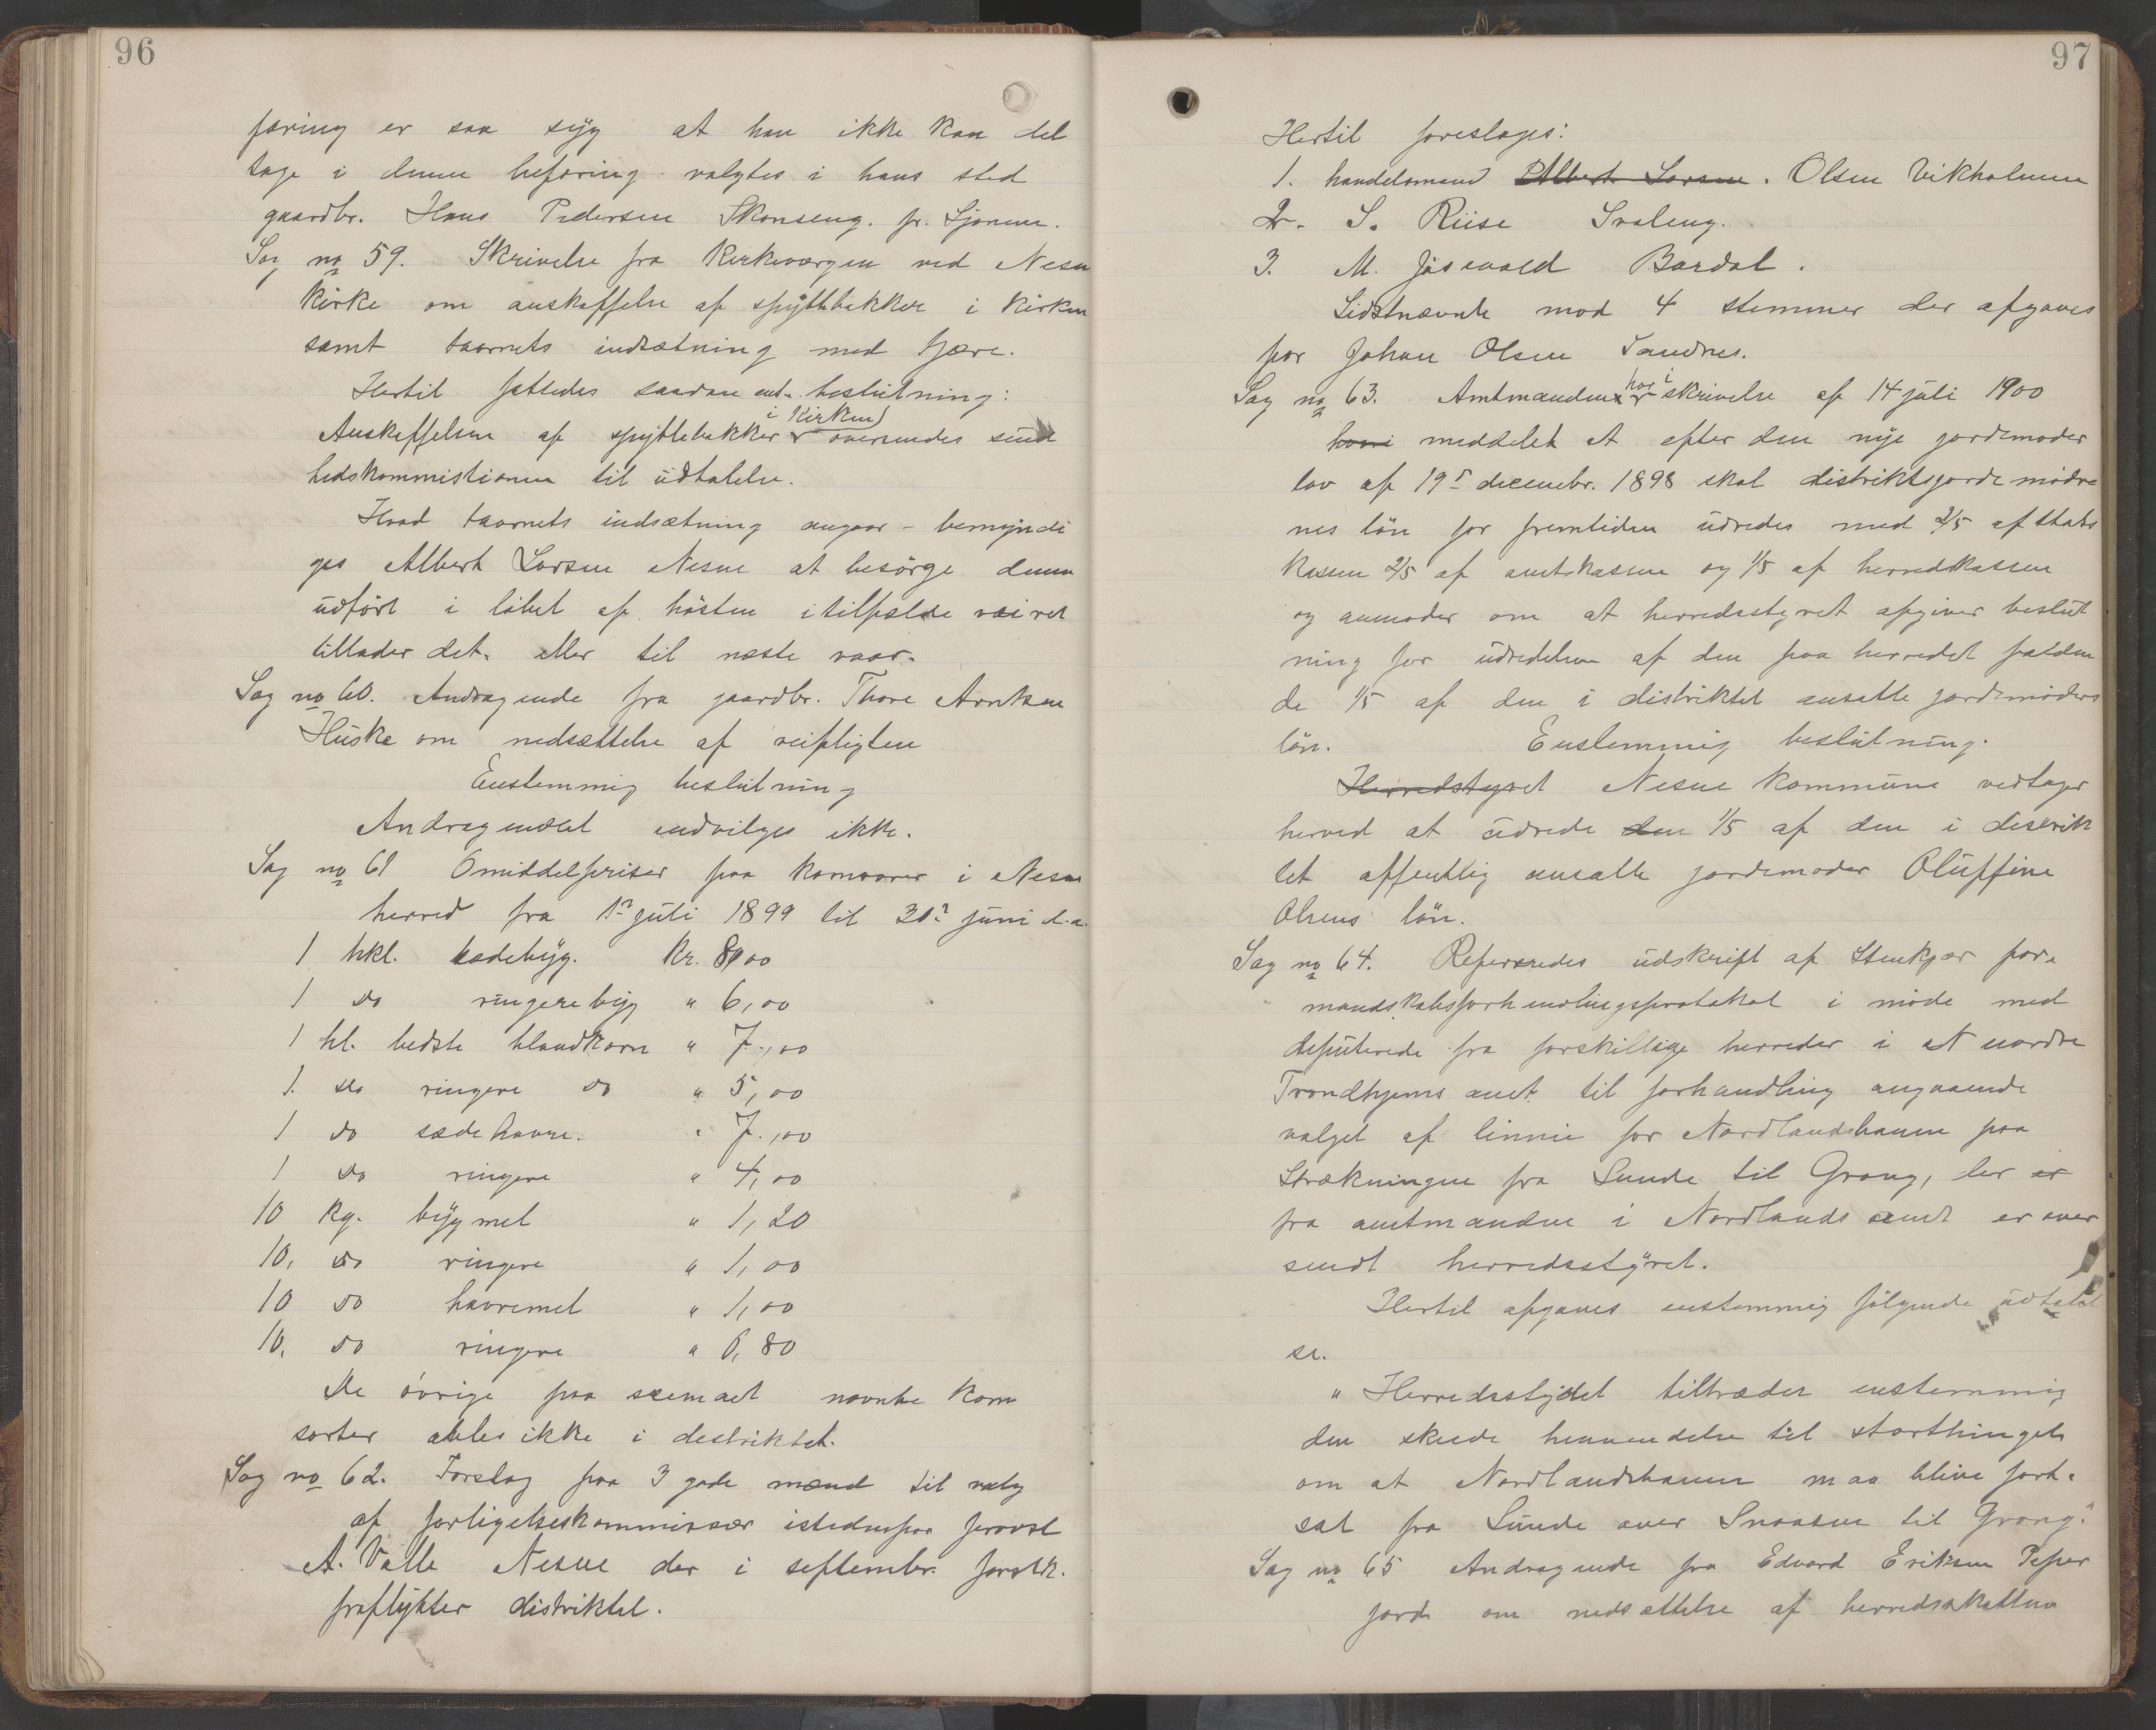 96
føring er saa syg at han ikke kan del
tage i denne beføring valgtes i hans sted
gaardbr. Hans Pedersen Skonseng. fr. Sjonen.
Sag no 59. Skrivelse fra Kirkeværgen ved Nesne
Kirke om anskaffelse af spyttebakker i Kirken
samt taarnets indsætning med tjære.
Hertil fattedes saadan enst. beslutning:
Anskaffelsen af spyttebakker i Kirken oversendes sund
hedskommistionen til udtalelse.
Hvad taarnets indsætning angaar - bemyndi
ges Albert Larsen Nesne at besörge denne
udfört i löbet af hösten i tilfælde veiret
tillader det. eller til næste vaar.
Sag no 60. Andragende fra gaardbr. Thore Arntsen
Huske om nedsættelse af veipligten
Enstemmig beslutning
Andragendet indvilges ikke.
Sag no 61 Omiddelpriser paa kornvarer i Nesne
herred fra 1ste juli 1899 til 30te juni d.a.
1 hkl. sædebyg. Kr. 8,00
1 do ringere byg " 6,00
1 hl. bedste blandkorn " 7,00
1. do ringere do " 5,00
1 do sædehavre. " 7,00
1 do ringere " 4,00
10 kg. bygmel " 1,20
10, do ringere " 1,00
10 do havremel " 1,00
10, do ringere " 0,80
De övrige paa scemaet nævnte korn
sorter avles ikke i destriktet.
Sag no 62. Forslag paa 3 gode mænd til valg
af forligelseskommissær istedenfor provst
A. Valle Nesne der i septembr. förstk.
fraflytter distriktet.
97
Hertil foreslages:
1. handelsmand Albert Larsen. Olsen Vikholmen
2. S. Riise Svaleng.
3. M. Jösevold Bardal.
Sidstnævnte mod 4 stemmer der afgaves
for Johan Olsen Tandnes.
Sag no 63. Amtmanden har i skrivelse af 14 juli 1900
meddelet at efter den nye jordemoder
lov af 19de decembr. 1898 skal distriktsjordemödre
nes lön for fremtiden udredes med 2/5 af stats
kassen 2/5 af amtskassen og 1/5 af herredskassen
og anmoder om at herredsstyret afgiver beslut
ning for udredelsen af den paa herredet falden
de 1/5 af den i distriktet ansatte jordemöders
lön. Enstemmig beslutning.
Herredstyret Nesne kommune vedtager
herved at udrede den 1/5 af den i destrik
tet offentlig ansatte jordemoder Oluffine
Olsens lön.
Sag no 64. Refereredes udskrift af Stenkjær for-
mandskabsforhandlingsprotokol i möde med
deputerede fra forskillige herreder i N nordre
Trondhjems amt til forhandling angaaende
valget af linnie for Nordlandsbanen paa
Strækningen fra Sunde til Grong, der er
fra amtmanden i Nordlands amt er over
sendt herredsstyret.
Hertil afgaves enstemmig fölgende udtalel
se.
" Herredsstydet tiltræder enstemmig
den skede henvendelse til storthinget
om at Nordlandsbanen maa blive fort-
sat fra Sunde over Snaasen til Grong."
Sag no 65 Andragende fra Edvard Eriksen Peper
jord om nedsættelse af herredsskatten